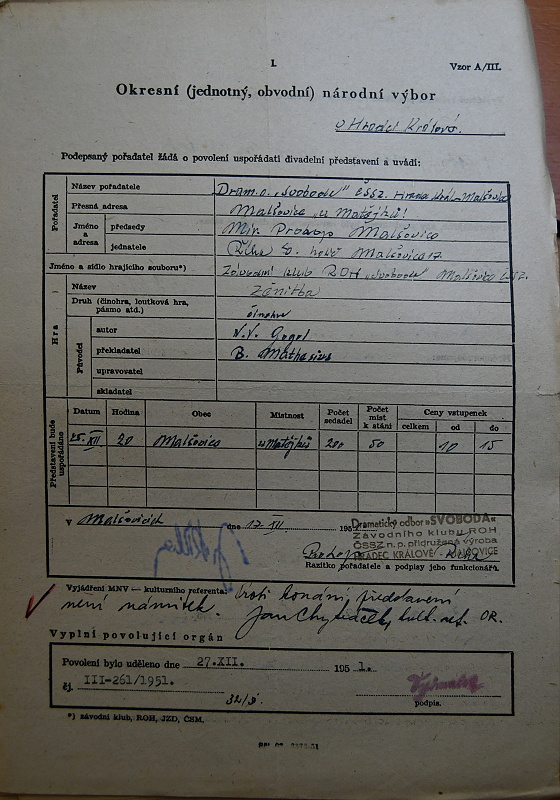 I.
Vzor A/III.
Okresní (jednotný, obvodní) národní výbor
v Hradci Králové.
Podepsaný pořadatel žádá o povolení uspořádati divadelní představení a uvádí:
Pořadatel
Název pořadatele Dram. o. „Svoboda" ČSSZ. Hradec Král.-Malšovice
Přesná adresa Malšovice „u Matějků"
Jméno a adresa
předsedy Malšovice
jednatele Malšovice 17.
Jméno a sídlo hrajícího souboru*) Závodní klub ROH „Svoboda" Malšovice ČSSZ.
Hra
Název Ženitba
Druh (činohra, loutková hra, pásmo atd.) činohra
Původci
autor N. V. Gogol
překladatel B. Mathesius
upravovatel
skladatel
Představení bude uspořádáno
Datum Hodina Obec Místnost Počet sedadel Počet míst k stání Ceny vstupenek
celkem od do
25. XII. 20 Malšovice u Matějků 200 50 10 15
V Malšovicích dne 17. XII 195
Dramatický odbor „SVOBODA"
Závodního klubu ROH
ČSSZ n. p. přidružená výroba
HRADEC KRÁLOVÉ - MALŠOVICE
Razítko pořadatele a podpisy jeho funkcionářů.
Vyjádření MNV — kulturního referenta: Proti konání představení
není námitek. Jan Chytráček, kult. ref. OR.
Vyplní povolující orgán
Povolení bylo uděleno dne 27.XII. 195 1.
čj. III-261/1951.
32/3.
podpis.
*) závodní klub, ROH, JZD, ČSM.